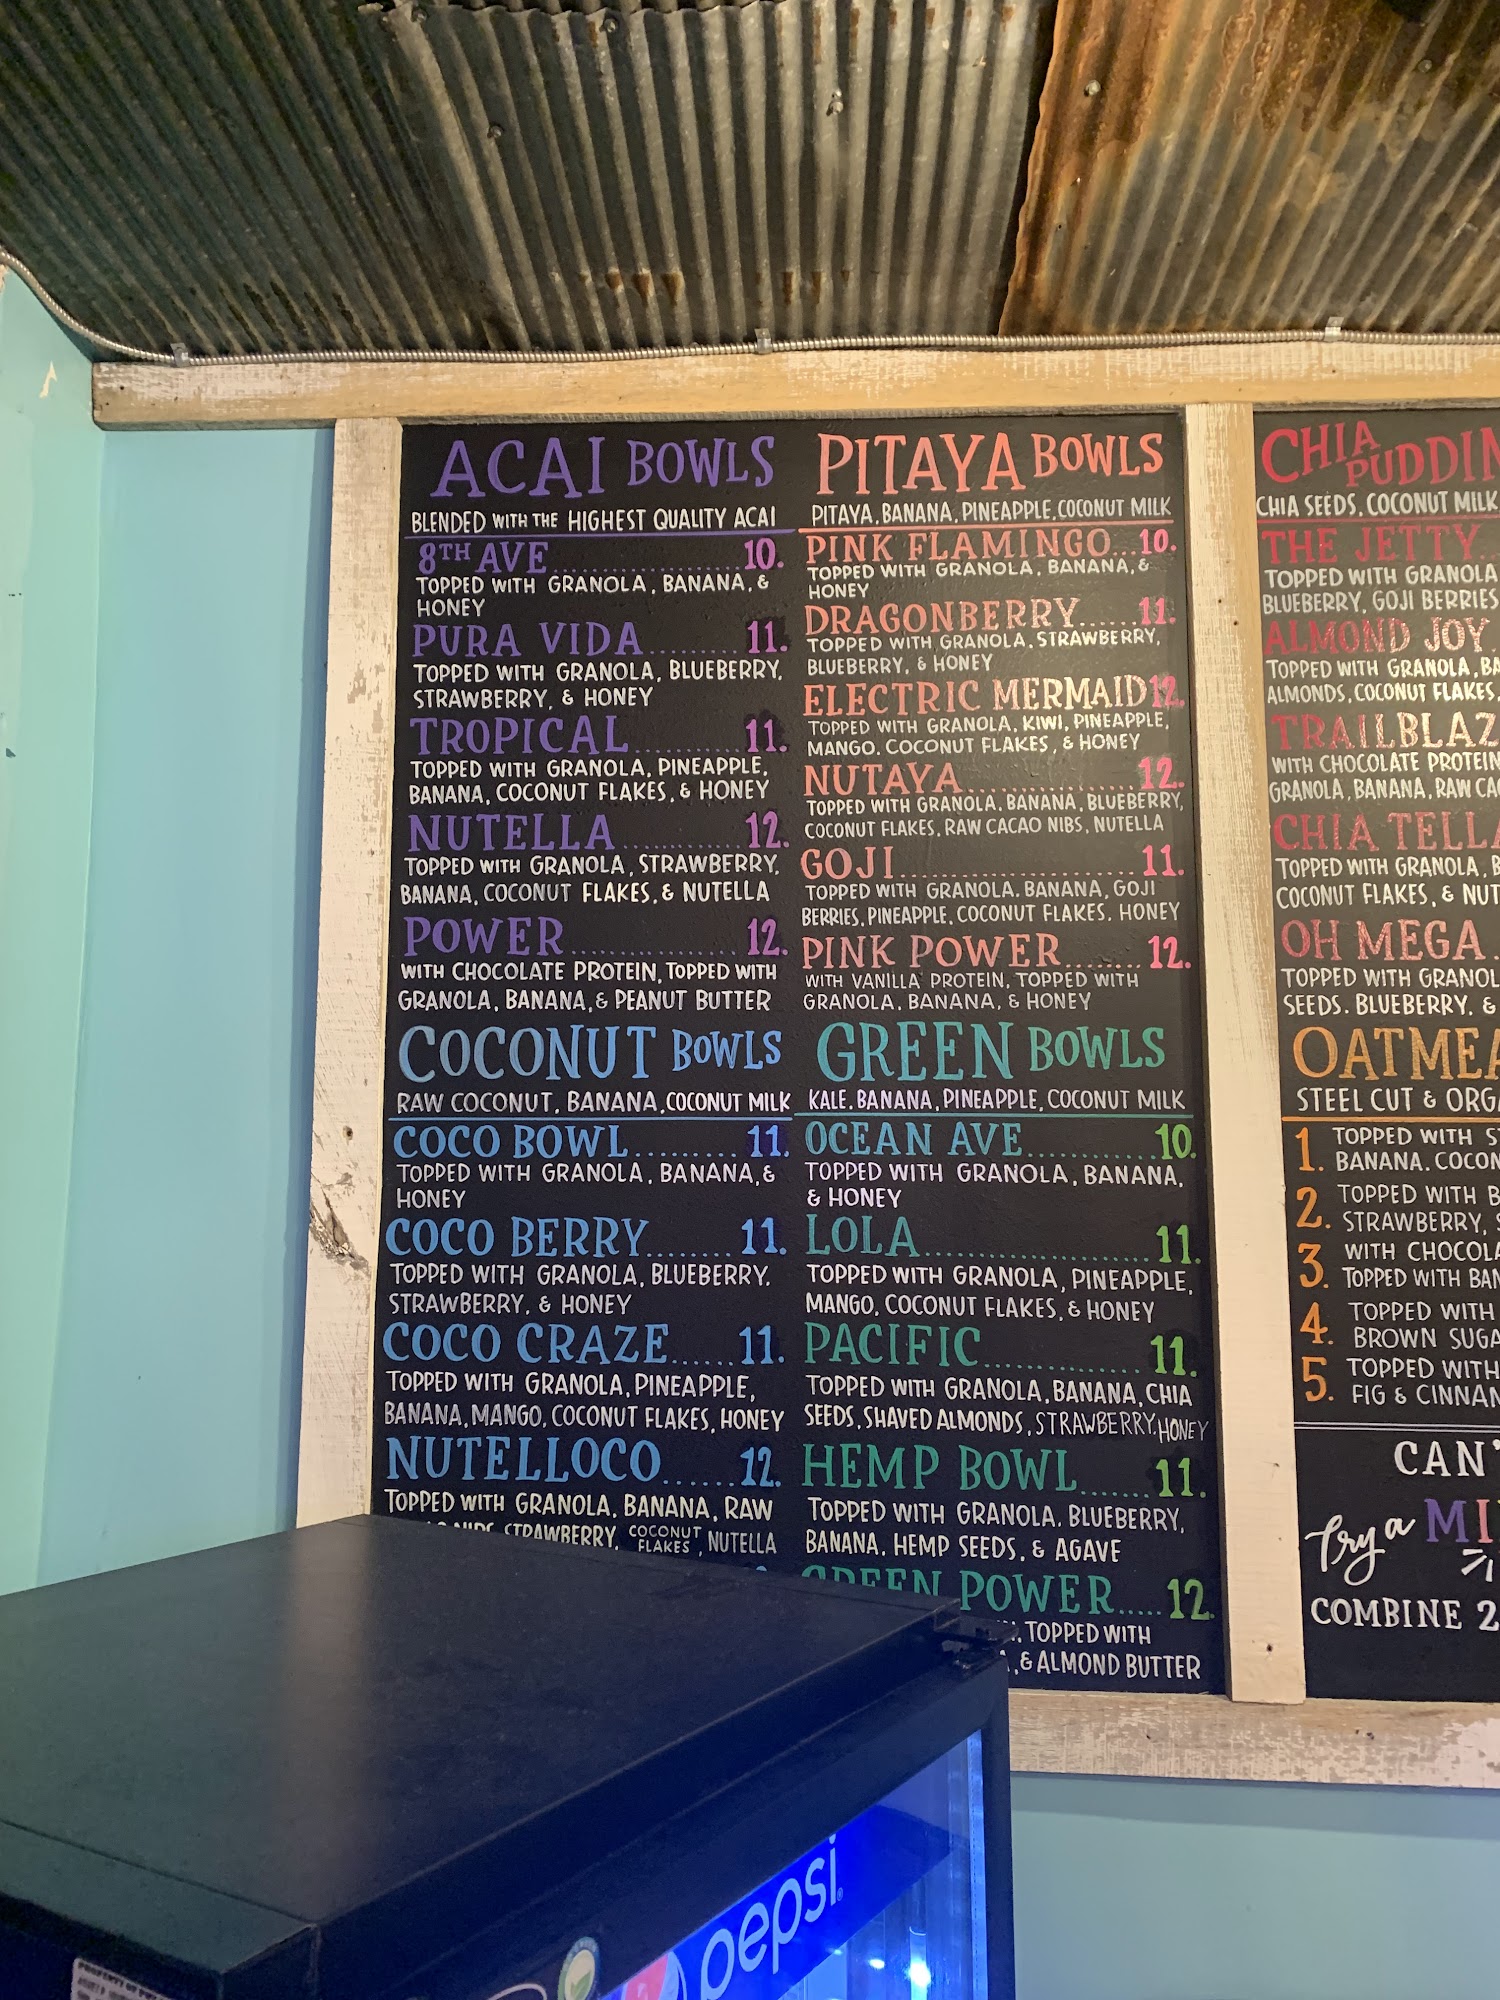 ACAI BOWLS
BLENDED WITH THE HIGHEST QUALITY ACAI
8TH AVE 10.
TOPPED WITH GRANOLA, BANANA, &
HONEY
PURA VIDA 11.
TOPPED WITH GRANOLA, BLUEBERRY,
STRAWBERRY, & HONEY
TROPICAL 11.
TOPPED WITH GRANOLA, PINEAPPLE,
BANANA, COCONUT FLAKES, & HONEY
NUTELLA 12.
TOPPED WITH GRANOLA, STRAWBERRY,
BANANA, COCONUT FLAKES, & NUTELLA
POWER 12.
WITH CHOCOLATE PROTEIN, TOPPED WITH
GRANOLA, BANANA, & PEANUT BUTTER
COCONUT BOWLS
RAW COCONUT, BANANA, COCONUT MILK
COCO BOWL 11.
TOPPED WITH GRANOLA, BANANA, &
HONEY
COCO BERRY 11.
TOPPED WITH GRANOLA, BLUEBERRY,
STRAWBERRY, & HONEY
COCO CRAZE 11.
TOPPED WITH GRANOLA, PINEAPPLE,
BANANA, MANGO, COCONUT FLAKES, HONEY
NUTELLOCO 12.
TOPPED WITH GRANOLA, BANANA, RAW
NIBS, STRAWBERRY, COCONUT FLAKES, NUTELLA
PITAYA BOWLS
PITAYA, BANANA, PINEAPPLE, COCONUT MILK
PINK FLAMINGO... 10.
TOPPED WITH GRANOLA, BANANA, &
HONEY
DRAGONBERRY 11.
TOPPED WITH GRANOLA, STRAWBERRY,
BLUEBERRY, & HONEY
ELECTRIC MERMAID 12.
TOPPED WITH GRANOLA, KIWI, PINEAPPLE,
MANGO, COCONUT FLAKES, & HONEY
NUTAYA 12.
TOPPED WITH GRANOLA, BANANA, BLUEBERRY,
COCONUT FLAKES, RAW CACAO NIBS, NUTELLA
GOJI 11.
TOPPED WITH GRANOLA, BANANA, GOJI
BERRIES, PINEAPPLE, COCONUT FLAKES, HONEY
PINK POWER 12.
WITH VANILLA PROTEIN, TOPPED WITH
GRANOLA, BANANA, & HONEY
GREEN BOWLS
KALE, BANANA, PINEAPPLE, COCONUT MILK
OCEAN AVE 10.
TOPPED WITH GRANOLA, BANANA,
& HONEY
LOLA 11.
TOPPED WITH GRANOLA, PINEAPPLE,
MANGO, COCONUT FLAKES, & HONEY
PACIFIC 11.
TOPPED WITH GRANOLA, BANANA, CHIA
SEEDS, SHAVED ALMONDS, STRAWBERRY, HONEY
HEMP BOWL 11.
TOPPED WITH GRANOLA, BLUEBERRY,
BANANA, HEMP SEEDS, & AGAVE
GREEN POWER 12.
TOPPED WITH
, & ALMOND BUTTER
CHIA PUDDIN
CHIA SEEDS, COCONUT MILK
THE JETTY
TOPPED WITH GRANOLA
BLUEBERRY, GOJI BERRIES
ALMOND JOY
TOPPED WITH GRANOLA, BA
ALMONDS, COCONUT FLAKES,
TRAILBLAZ
WITH CHOCOLATE PROTEIN
GRANOLA, BANANA, RAW CA
CHIA TELLA
TOPPED WITH GRANOLA, B
COCONUT FLAKES, & NUT
OH MEGA
TOPPED WITH GRANOL
SEEDS, BLUEBERRY, &
OATMEA
STEEL CUT & ORG
1. TOPPED WITH S
BANANA, COCON
2. TOPPED WITH B
STRAWBERRY, S
3. WITH CHOCOLA
TOPPED WITH BAN
4. TOPPED WITH
BROWN SUGA
5. TOPPED WITH
FIG & CINNAN
CAN'
Try a MI
COMBINE 2
pepsi